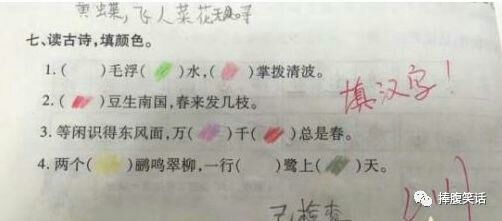 黄蝶，飞入菜花无处寻
七、读古诗，填颜色。
1.（ ）毛浮（ ）水，（ ）掌拨清波。
2.（ ）豆生南国，春来发几枝。
填汉字！
3. 等闲识得东风面，万（ ）千（ ）总是春。
4. 两个（ ）鹂鸣翠柳，一行（ ）鹭上（ ）天。
捧腹笑话